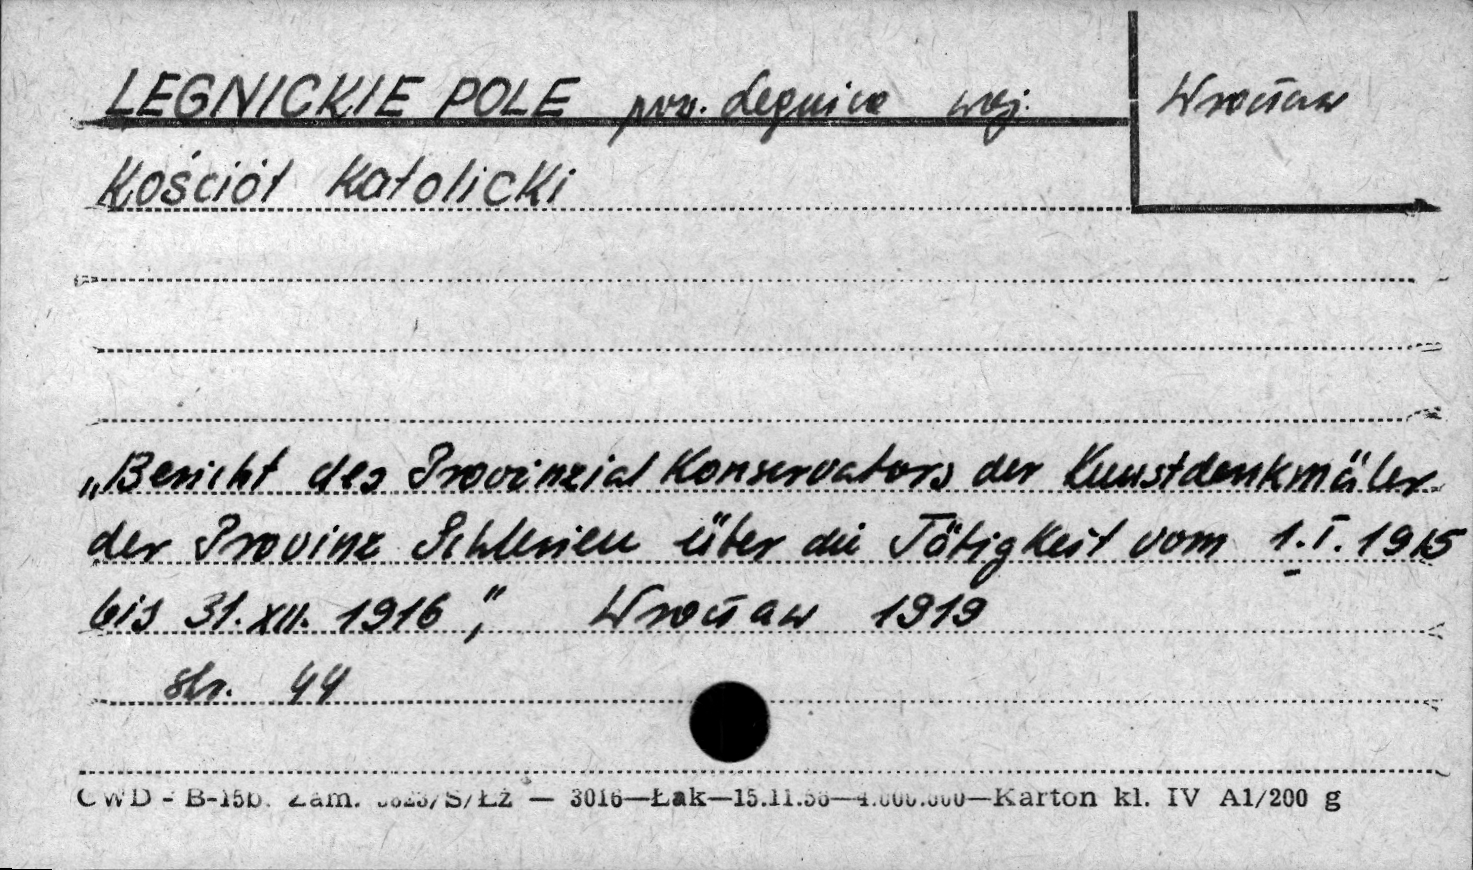 LEGNICKIE POLE pow. Legnica woj. Wrocław
Kościół Katolicki
„Bericht des Provinzial Konservators der Kunstdenkmäler
der Provinz Schlesien über die Tätigkeit vom 1.I.1915
bis 31.XII.1916," Wrocław 1919
str. 44
CWD - B-15b. Zam. S/Łż — 3016—Łak—15.11.56—4.000.000—Karton kl. IV A1/200 g